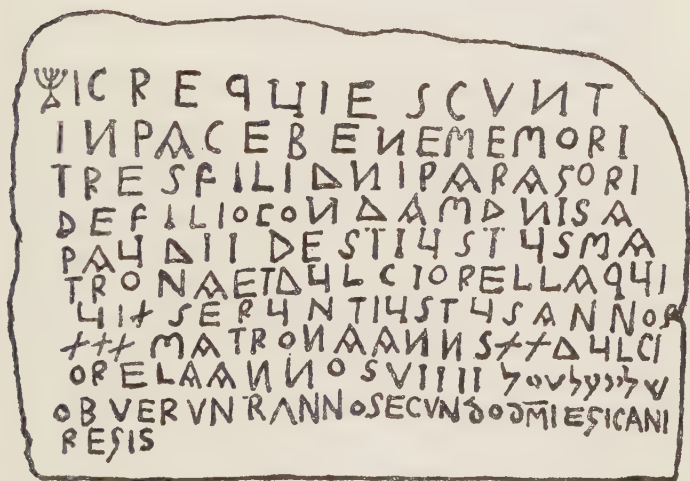 IC REQUIESCVNT
IN PACE BENEMEMORI
TRES FILI DNI PARAGORI
DE FILIO CONDAM DNI SA
PAUDI IDEST IUSTUS MA
TRONA ET DULCIORELLA QUI
UIXSERUNT IUSTUS ANNOS
XXX MATRONA ANNS XX DULCI
ORELA ANNOS VIIII שלום על שראל
OBVERVNR ANNO SECVNDO DMI EGICANI
REGIS